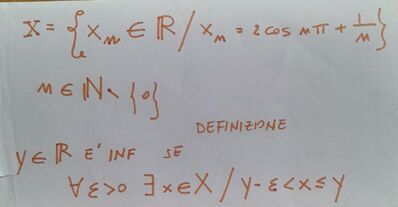 X = { x_n ∈ ℝ / x_n = 2 cos nπ + 1/n }
n ∈ ℕ \ {0}
DEFINIZIONE
y ∈ ℝ E' INF SE
∀ ε>0 ∃ x ∈ X / y-ε < x ≤ y